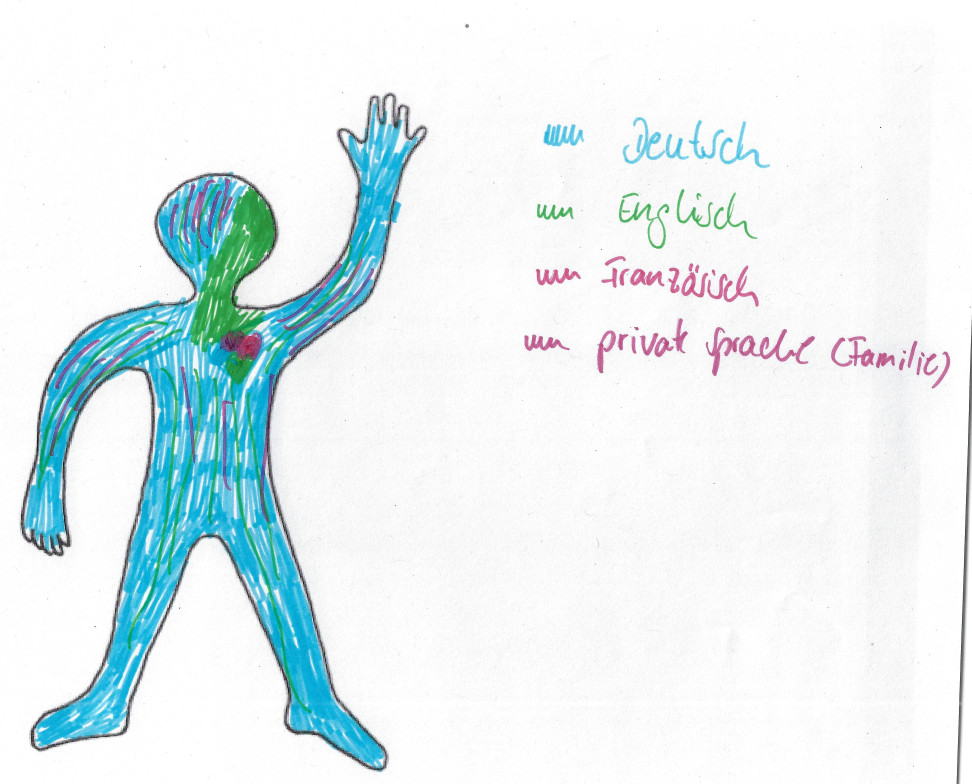 Deutsch
Englisch
Französisch
private Sprache (Familie)